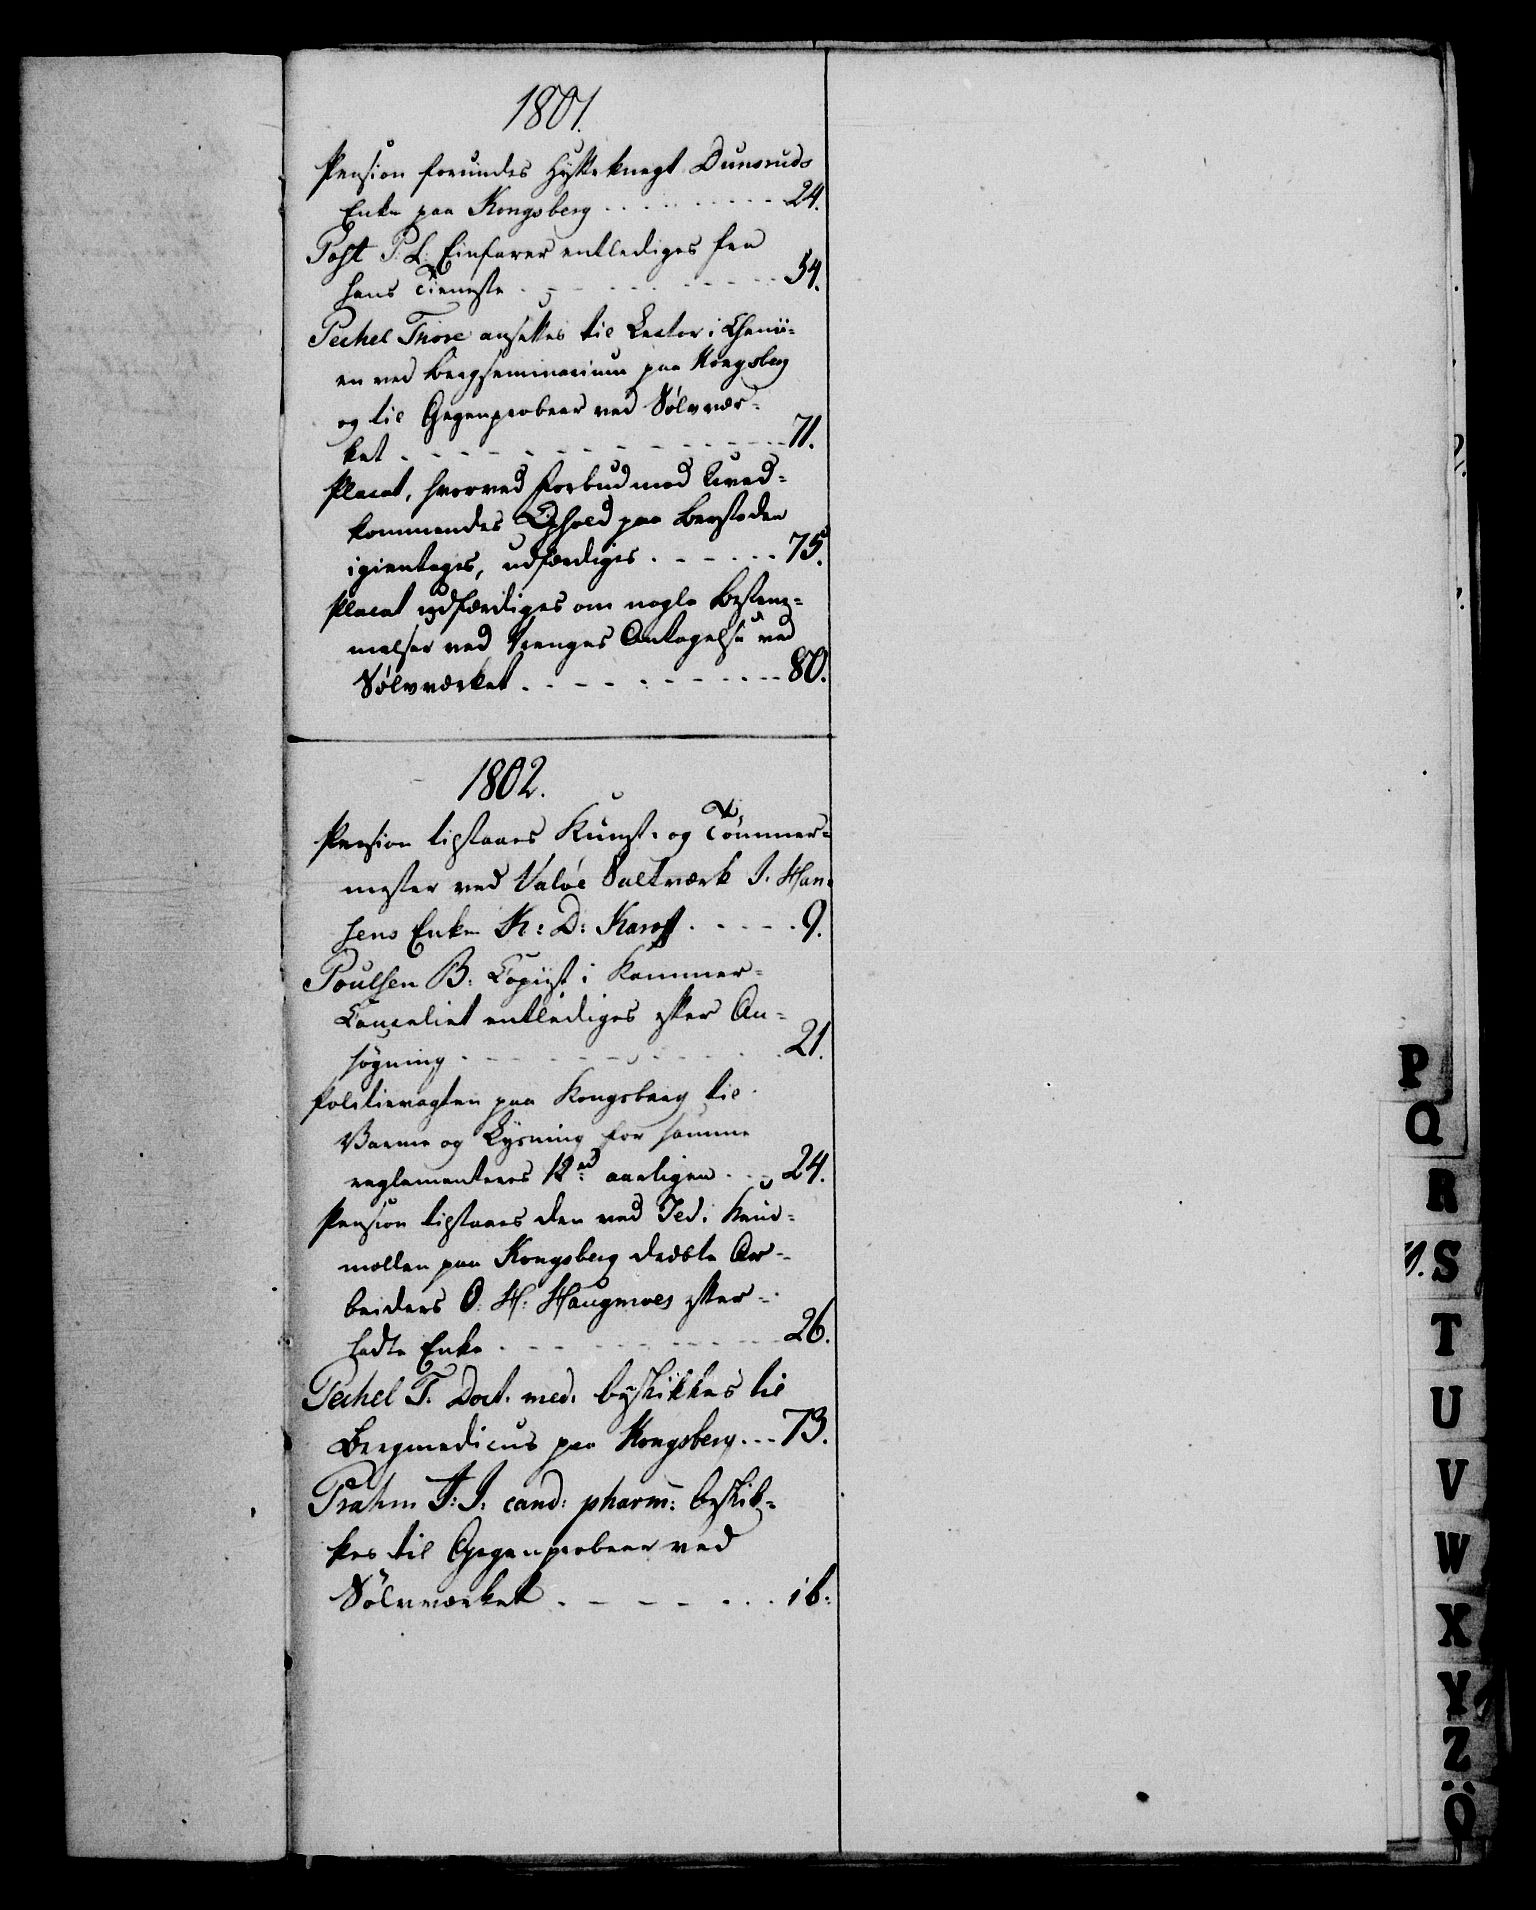 1801.
Pension forundes Hytteknegt Dunsruds
Enke paa Kongsberg . . . . . . . . 24.
Post P. L. Einfarer entlediges fra
hans Tieneste . . . . . . . . 54.
Pechel Thore ansettes til Lector i Chemi-
en ved Bergseminarium paa Kongsberg
og til Gegenprobeer ved Sølvvær-
ket . . . . . . . . 71.
Placat, hvorved Forbud mod Uved-
kommendes Ophold paa Bergstaden
igientages, udfærdiges . . . . . 75.
Placat udfærdiges om nogle Bestem-
melser ved Drenges Antagelse ved
Sølvværket . . . . . . . . 80.
1802.
Pension tilstaaes Kunst- og Tömmer-
mester ved Valöe Saltværk J. Han-
sens Enke K: D: . . . . . 9.
Poulsen B. Copiist i Kammer-
Cancelliet entlediges efter An-
søgning . . . . . . . . 21.
Politievagten paa Kongsberg til
Varme og Lysning for samme
reglementeres 12 rd aarligen . . . 24.
Pension tilstaaes den ved Fed. Krud-
møllen paa Kongsberg dræbte Ar-
beiders O. H. Haugmoes efter-
ladte Enke . . . . . . . . 26.
Pechel T. Doct. med. beskikkes til
Bergmedicus paa Kongsberg . . . 73.
Prahm F: J: cand: pharm: beskik-
kes til Gegenprobeer ved
Sølvværket . . . . . . . ib:
P
Q
R
S
T
U
V
W
X
Y
Z
Ö